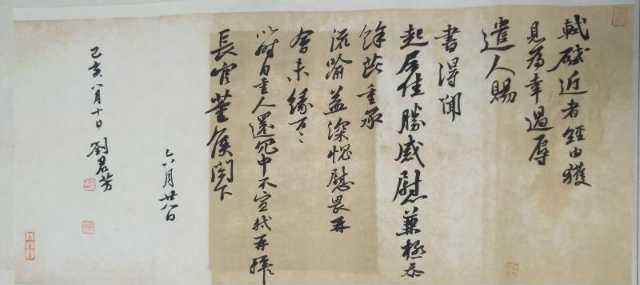 軾啟近者經由獲
見為幸過辱
遣人賜
書得聞
起居佳勝感慰兼極忝
餘芘重承
流喻益深愧慰畏再
會未緣万〻
以時自重人還冗中不宣軾再拜
長官董侯閣下
六月廿八日
己亥八月十日 劉君芳